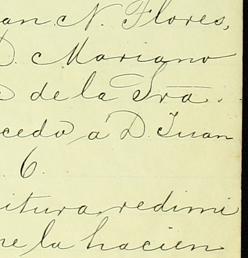 an N. Flores,
D. Mariano
de la Sra.
cedo a D. Juan
6.
itura redimi
re la hacien